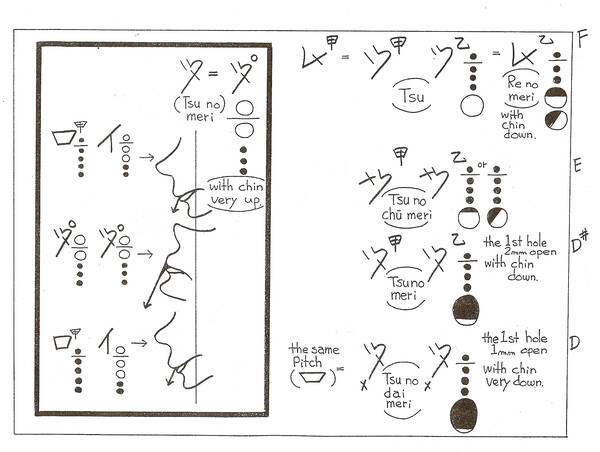 ツ = ツ°
(Tsu no meri)
with chin
very up.
甲 イ
ツ° ツ°
甲 イ
レ 甲 = ツ 甲 ツ 乙 = レ 乙 F
Tsu
Re no
meri
with
chin
down.
甲 乙 or E
Tsu no
chū meri
ツ 甲 ツ 乙 D#
Tsu no
meri
the 1st hole
2mm open
with chin
down.
the same
Pitch
( ) = ツ ツ D
Tsu no
dai
meri
the 1st hole
1mm open
with chin
very down.